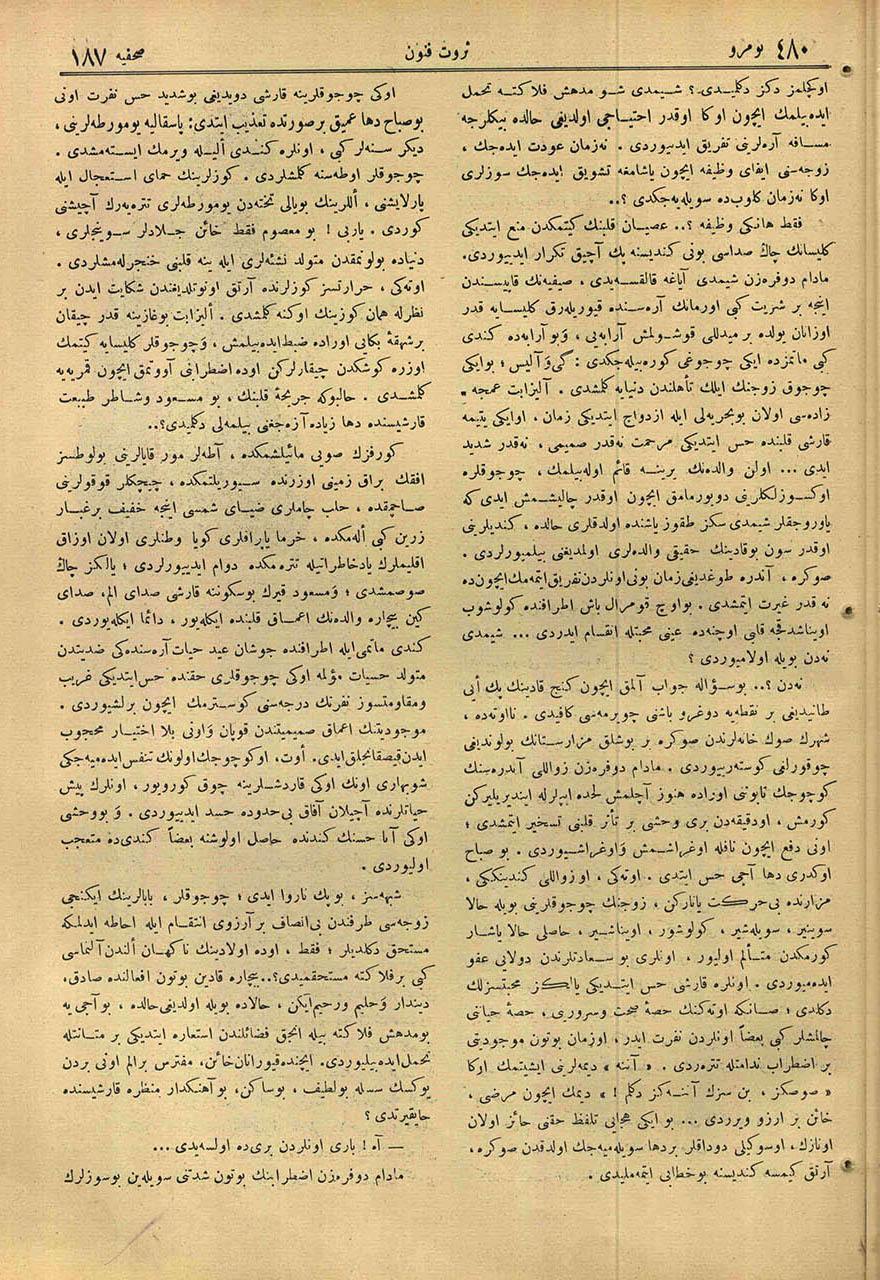 ٤٨٠ نومرو
ثروت فنون
صحفیه ١٨٧
اوكچلمز دكز دكلیدی؟ شیمدی شو مدهش فلاكته تحمل
ایده‌بیلمك ایچون اوكا اوقدر احتیاجی اولدیغی حالده بیكلرجه
مسافه آره‌لرینی تفریق ایدییوردی . نه‌زمان عودت ایده‌جك ،
زوجه‌سنی ایفای وظیفه ایچون یاشامغه تشویق ایده‌جك سوزلری
اوكا نه‌زمان كلوب‌ده سویله‌یه‌جكدی ؟..
فقط هانكی وظیفه ؟.. عصیان قلبنك كیتمكدن منع ایتدیكی
كلیسانك چاڭ صداسی بونی كندیسنه پك آچیق تكرار ایدییوردی.
مادام دوفره‌زن شیمدی آیاغه قالقسه‌یدی ، صیفیه‌نك قاپیسندن
اینجه بر شریت كبی اورمانك آره‌سنده قیوریله‌رق كلیسایه قدر
اوزانان یولده بر میدللی قوشولمش آرابه‌یی ، و بو آرابه‌ده كندی
كبی ماتمزده ایكی چوجوغی كوره‌بیله‌جكدی : گی و آلیس ؛ بوایكی
چوجوق زوجنك ایلك تأهلندن دنیایه كلمشدی . آلیزابت عمجه
زاده‌سی اولان بوبحریه‌لی ایله ازدواج ایتدیكی زمان ، اوایكی یتیمه
قارشی قلبنده حس ایتدیكی مرحمت نه‌قدر صمیمی ، نه‌قدر شدید
ایدی ... اولن والده‌نك یرینه قائم اوله‌بیلمك ، چوجوقلره
اوكسوزلكلرینی دویورمامق ایچون اوقدر چالیشمش ایدی كه
یاوروجقلر شیمدی سكز طقوز یاشنده اولدقلری حالده ، كندیلرینی
اوقدر سون بوقادینك حقیقی والده‌لری اولمدیغنی بیلمیورلردی .
صوكره ، آندره طوغدیغی زمان بونی اونلردن تفریق ایتمه‌مك ایچون‌ده
نه قدر غیرت ایتمشدی . بواوچ قومرال باش اطرافنده كولوشوب
اویناشدقجه قلبی اوچنه‌ده عینی محبتله انقسام ایدردی ... شیمدی
نه‌دن بویله اولامیوردی ؟
نه‌دن ؟.. بوسؤاله جواب آلمق ایچون كنج قادینك پك أیی
طانیدیغی بر نقطه‌یه دوغرو باشنی چویرمه‌سی كافیدی . تااوته‌ده ،
شهرك صوك خانه‌لرندن صوكره بر بوشلق مزارستانك بولوندیغی
چوقورلغی كوسته‌رییوردی . مادام دوفره‌زن زواللی آندره‌سنك
كوچوجك تابوتنی اوراده هنوز آچلمش لحده ایپلرله ایندیریلیركن
كورمش ، اودقیقه‌دن بری وحشی بر تأثر قلبنی تسخیر ایتمشدی ؛
اونی دفع ایچون نافله اوغراشمش و اوغراشیوردی . بو صباح
اوكدری دها آجی حس ایتدی . اوته‌كی ، اوزواللی كندیننكی ،
مزارنده بی‌حركت یاتاركن ، زوجنك چوجوقلرینی بویله حالا
سوینیر ، سویله‌شیر ، كولوشور ، اویناشیر ، حاصلی حالا یاشار
كورمكدن متألم اولیور ، اونلری بو سعادتلرندن دولایی عفو
ایده‌میوردی . اونلره قارشی حس ایتدیكی یالكز محبتسزلك
دكلدی ؛ صانكه اوته‌كنك حصهٔ صحت وسروری ، حصهٔ حیاتی
چالمشلر كبی بعضاً اونلردن نفرت ایدر ، اوزمان بوتون موجودیتی
بر اضطراب ندامتله تتره‌ردی . « آننه » دیمه‌لرینی ایشیتمك اوكا
« صوصكز ، بن سزك آننه‌كز دكلم ! » دیمك ایچون مرضی ،
خائن بر آرزو ویرردی ... بو ایكی هجایی تلفظ حقنی حائز اولان
اونازك ، اوسوكیلی دوداقلر بردها سویله‌میه‌جك اولدقدن صوكره ،
آرتق كیمسه كندیسنه بوخطابی ایتمه‌ملیدی .
اوكی چوجوقلرینه قارشی دویدیغی بوشدید حس نفرت اونی
بوصباح دها عمیق برصورتده تعذیب ایتدی: پاسقالیه یومورطه‌لرینی ،
دیكر سنه‌لر كبی ، اونلره كندی ألیله ویرمك ایسته‌مشدی .
چوجوقلر اوطه‌سنه كلمشلردی . كوزلرینك حمای استعجال ایله
پارلایشنی ، أللرینك بویالی تخته‌دن یومورطه‌لری تتره‌یه‌رك آچیشنی
كوردی . یاربی ! بو معصوم فقط خائن جلادلر سوینجلری ،
دنیاده بولونمقدن متولد نشئه‌لری ایله ینه قلبنی خنجرله‌مشلردی .
اوته‌كی ، حرارتسز كوزلرنده آرتق اونوتلدیغندن شكایت ایدن بر
نظرله همان كوزینك اوكنه كلمشدی . ألیزابت بوغازینه قدر چیقان
برشهقهٔ بكایی اوراده ضبط ایده‌بیلمش ، و چوجوقلر كلیسایه كیتمك
اوزره كوشكدن چیقارلركن اوده اضطرابنی آووتمق ایچون قمریه‌یه
كلمشدی . حالبوكه جریحهٔ قلبنك ، بو مسعود وشاطر طبیعت
قارشیسنده دها زیاده آزه‌جغنی بیلمه‌لی دكلمیدی؟..
كورفزك صویی مائیلشمكده ، آطه‌لر مور قایالرینی بولوطسز
افقك براق زمینی اوزرنده سیوریلتمكده ، چیچكلر قوقولرینی
صاچمقده ، حلب چاملری ضیای شمسی اینجه خفیف برغبار
زرین كبی أله‌مكده ، خرما یاپراقلری كویا وطنلری اولان اوزاق
اقلیملرك یادخاطراتیله تتره‌مكده دوام ایدییورلردی ؛ یالكز چاڭ
صوصمشدی ؛ و مسعود قیرك بوسكوننه قارشی صدای الم، صدای
كین بیچاره والده‌نك اعماق قلبنده ایكله‌یور ، دائما ایكله‌یوردی .
كندی ماتمی‌ایله اطرافنده جوشان عید حیات آره‌سنده‌كی ضدیتدن
متولد حسیات مؤلمه اوكی چوجوقلری حقنده حس‌ایتدیكی غریب
ومقاومتسوز نفرتك درجه‌سنی كوسترمك ایچون برلشیوردی .
موجودیتك اعماق صمیمیتندن قوپان و اونی بلا اختیار محجوب
ایدن قیصقانجلق‌ایدی. أوت، اوكوچوجك اولونك تنفس ایده‌میه‌جكی
شوبهاری اونك اوكی قاردشلرینه چوق كورویور ، اونلرك پیش
حیاتلرنده آچیلان آفاق بی‌حدوده حسد ایدییوردی . و بووحشی
اوكی آنا حسنك كندنده حاصل اولوشنه بعضاً كندی‌ده متعجب
اولیوردی .
شبهه‌سز ، بوپك ناروا ایدی ؛ چوجوقلر ، بابالرینك ایكنجی
زوجه‌سی طرفندن بی‌انصاف بر آرزوی انتقام ایله احاطه ایدلمكه
مستحق دكلدیلر ؛ فقط ، اوده اولادینك ناكهان ألندن آلنماسی
كبی برفلاكته مستحقمیدی؟.. بیچاره قادین بوتون افعالنده صادق،
دیندار و حلیم ورحیم‌ایكن ، حالاده بویله اولدیغی‌حالده ، بوآجی یه
بومدهش فلاكته بیله انجق فضائلندن استعاره ایتدیكی بر متانتله
تحمل‌ایده‌بیلیوردی. ایچنده قیورانان‌خائن، مفترس برالم اونی بردن
یوكسك سسله بولطیف ، بوساكن، بوآهنكدار منظره قارشیسنده
حایقیرتدی ؟
— آه ! باری اونلردن بری‌ده اولسه‌یدی ...
مادام دوفره‌زن اضطرابنك بوتون شدتنی سویله‌ین بوسوزلرك